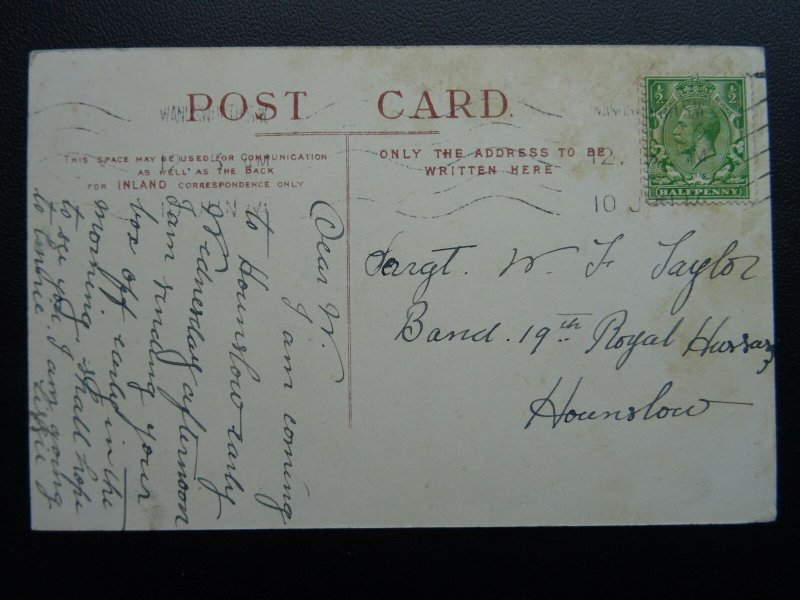 POST CARD.
THIS SPACE MAY BE USED FOR COMMUNICATION
AS WELL AS THE BACK
FOR INLAND CORRESPONDENCE ONLY
ONLY THE ADDRESS TO BE
WRITTEN HERE
½ ½
HALFPENNY
Dear W
I am coming
to Hounslow early
Wednesday afternoon
I am sending your
box off early in the
morning. shall hope
to see you. I am going
to
Lizzie
Sergt. W. F. Taylor
Band. 19th Royal Hussars
Hounslow